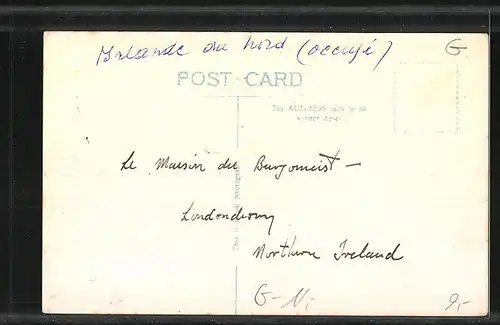 Irlande du Nord (occupé)
G
POST CARD
The ADDRESS only to be
written here.
Le Maison du Burgomeist –
Londonderry
Northern Ireland
This is a real photograph
G-N,-
9,-